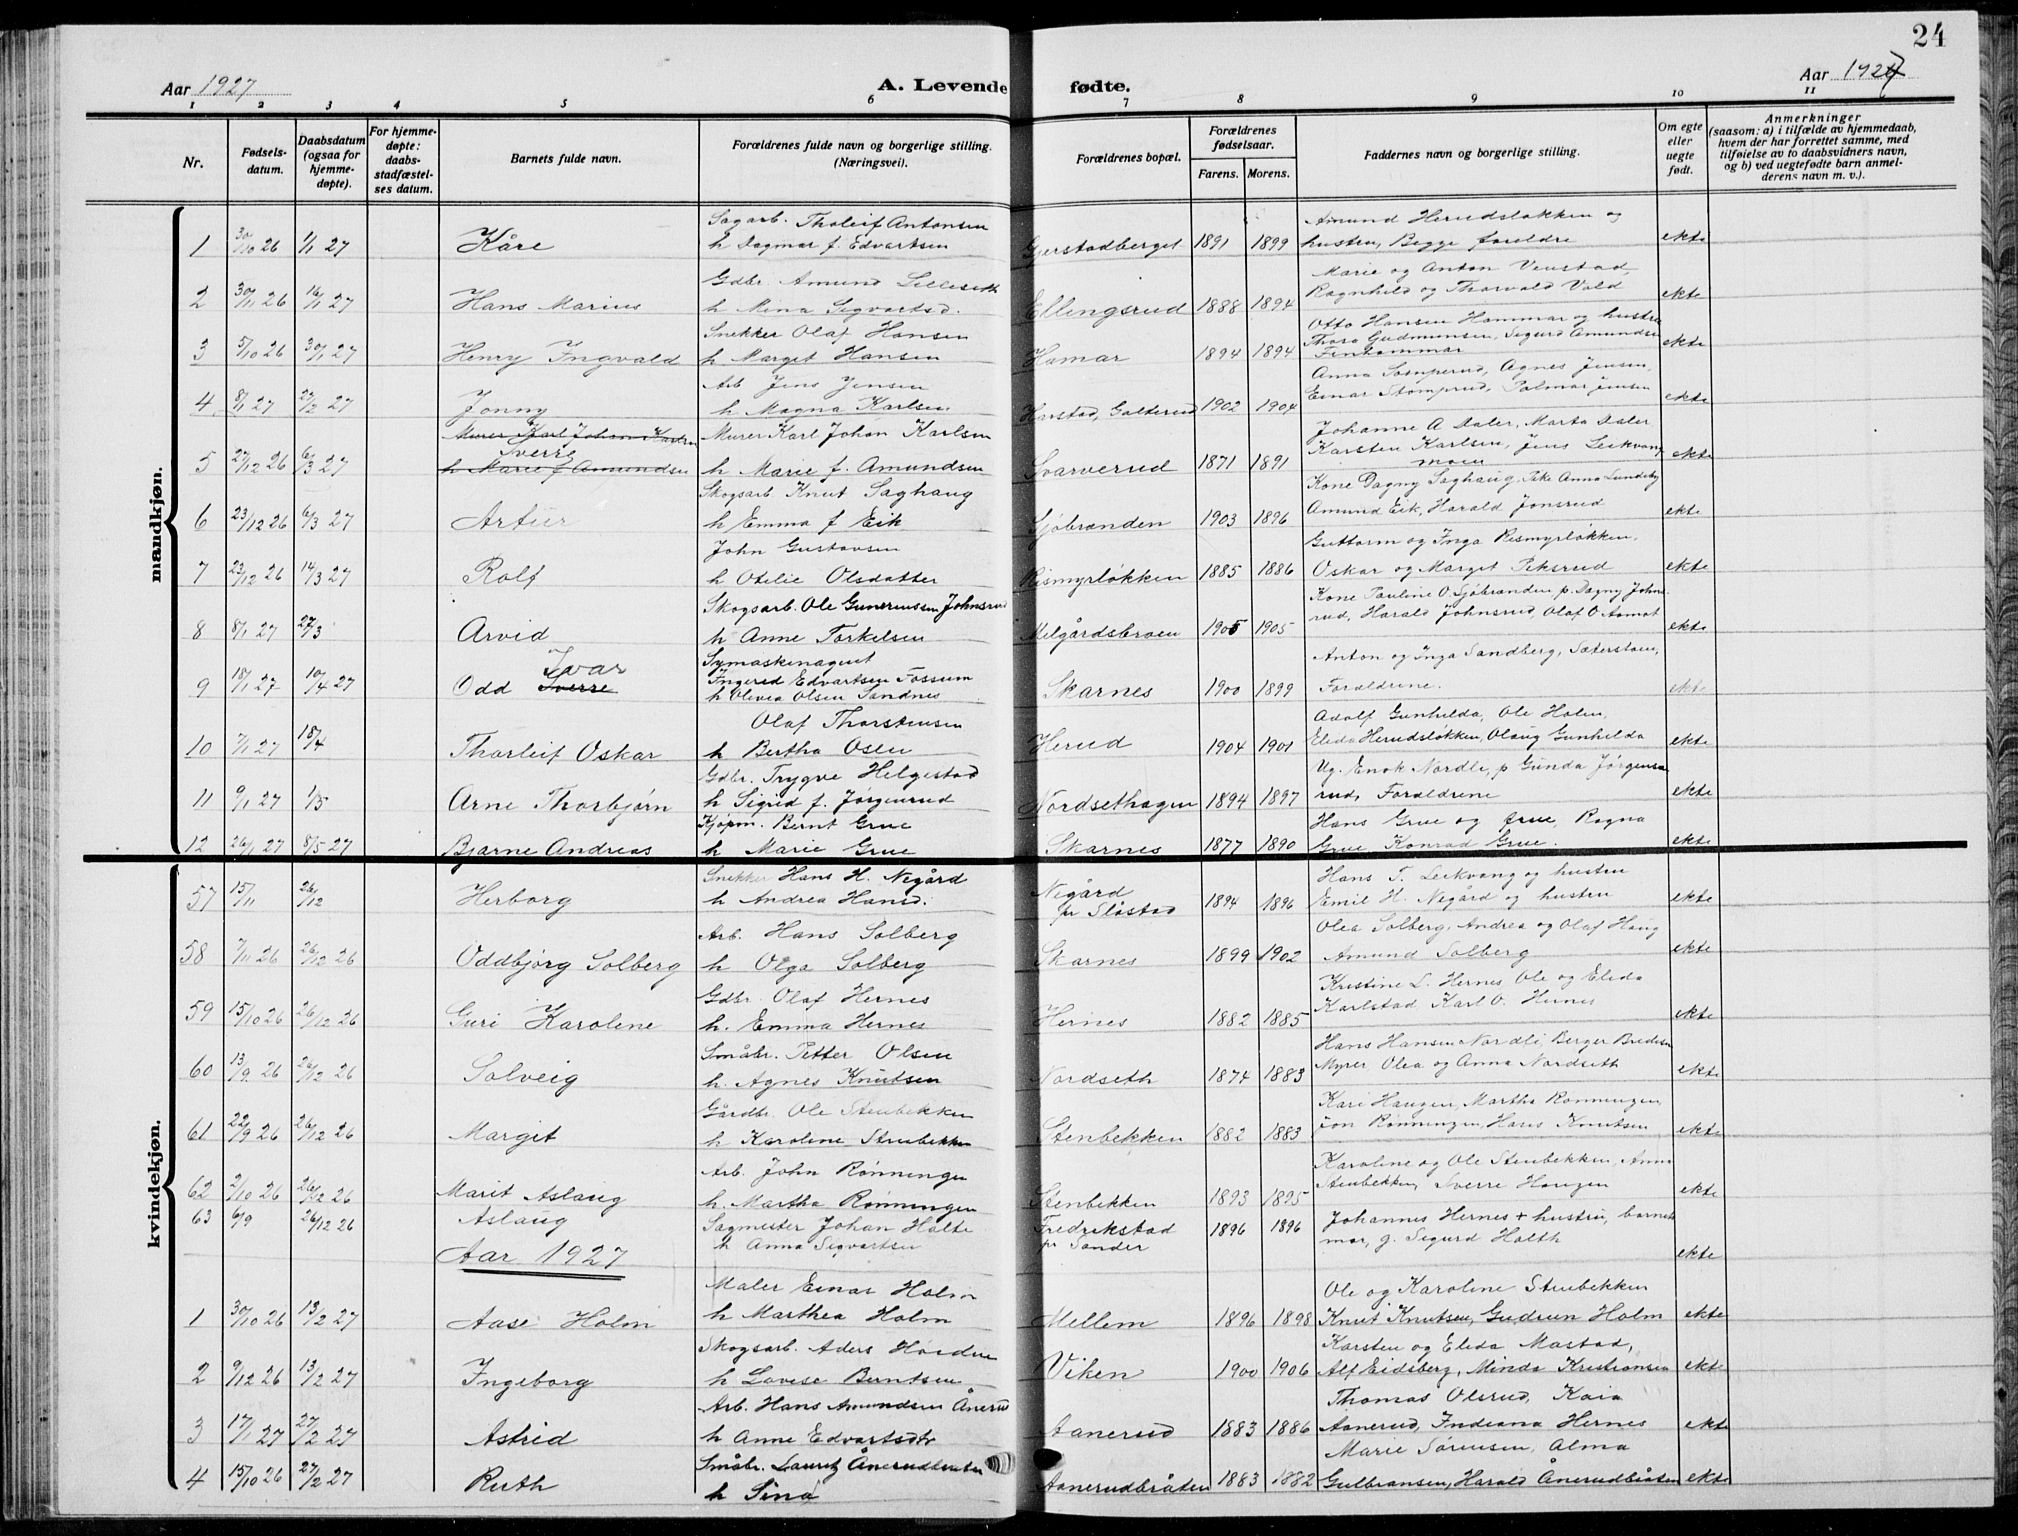 24
Aar 1927
A. Levende fødte.
Aar 1927
1 2 3 4 5 6 7 8 9 10 11
Nr.
Fødsels-
datum.
Daabsdatum
(ogsaa for
hjemme-
døpte).
For hjemme-
døpte:
daabs-
stadfæstel-
ses datum.
Barnets fulde navn.
Forældrenes fulde navn og borgerlige stilling.
(Næringsvei).
Forældrenes bopæl.
Forældrenes
fødselsaar.
Farens. Morens.
Faddernes navn og borgerlige stilling.
Om egte
eller
uegte
født.
Anmerkninger
(saasom: a) i tilfælde av hjemmedaab,
hvem der har forrettet samme, med
tilføielse av to daabsvidners navn,
og b) ved uegtefødte barn anmel-
derens navn m. v.).
mandkjøn.
Sagarb. Tholeif Antonsen Amund Herudsløkken og
1 30/10 26 1/1 27 Kåre h Dagmar f. Edvartsen Gjerstadberget 1891 1899 hustru, Begge foreldre ekte
Gdbr. Amund Lilleseth Marie og Anton Venstad
2 30/11 26 16/1 27 Hans Marius h Mina Sigvartsd. Ellingsrud 1888 1894 Ragnhild og Thorvald Vold ekte
Snekker Olaf Hansen Otto Hansen Hammar og hustru
3 5/10 26 30/1 27 Henry Ingvald h. Marget Hansen Hamar 1894 1894 Thora Gudmunsen, Sigurd Amundsen ekte
Arb Jens Jensen Anna Stomperud, Agnes Jensen,
4 8/1 27 27/2 27 Jonny h Magna Karlsen Harstad, Galterud 1902 1904 Einar Stomprud, Palmar Jensen ekte
Murer Karl Johan Karlsen Murer Karl Johan Karlsen Johanne A Daler, Marta Daler
Sverre Karsten Karlsen, Jens Leikvang
5 27/12 26 6/3 27 h Marie f Amundsen h Marie f. Amundsen Svarverud 1871 1891 moen ekte
Skogsarb Knut Saghaug Kone Dagny Saghaug, Pike Anna Lundeby
6 23/12 26 6/3 27 Artur h Emma f Eik Sjøbranden 1903 1896 Amund Eik, Harald Jonsrud ekte
John Gustavsen Guttorm og Inga Rismyrløkken,
7 23/12 26 14/3 27 Rolf h Otelie Olsdatter Rismyrløkken 1885 1886 Oskar og Marget Piksrud ekte
Skogsarb. Ole Gunerussen Johnsrud Kone Pauline O. Sjøbranden p. Dagny Johns-
8 8/1 27 27/3 Arvid h Anne Torkelsen Melgårdsbroen 1905 1905 rud, Harald Johnsrud, Olaf O. Aamot ekte
Ivar Symaskinagent Anton og Inga Sandberg, Sæterstøen,
Ingerid Edvartsen Fossum
9 18/1 27 10/4 27 Odd Sverre h Olivia Olsen Sandnes Skarnes 1900 1899 Forældrene. ekte
Olaf Thorstensen Adolf Gunhilda, Ole Holen,
10 7/1 27 18/4 Tharleif Oskar h Bertha Osen Herud 1904 1901 Elida Herudsløkken, Olaug Gunhilda ekte
Gdbr. Trygve Helgestad Ug. Enok Nordli, p Gunda Jørgensa
11 9/1 27 1/5 Arne Thorbjørn h Sigrid f. Jørgenrud Nordsethagen 1894 1897 rud, Forældrene ekte
Kjøpm. Bernt Grue Hans Grue og frue, Ragna
12 26/1 27 8/5 27 Bjarne Andreas h Marie Grue Skarnes 1877 1890 Grue Konrad Grue. ekte
kvindekjøn.
Snekker Hans H. Negård Hans T. Leikvang og hustru
57 15/11 26/12 Herborg h Andrea Hansd. Negård pr Slåstad 1894 1896 Emil H. Negård og hustru ekte
Arb. Hans Solberg Olea Solberg, Andrea og Olaf Haug
58 7/11 26 26/12 26 Oddbjørg Solberg h Olga Solberg Skarnes 1899 1902 Amund Solberg ekte
Gdbr. Olaf Hernes Kristine L. Hernes Ole og Elida
59 15/10 26 26/12 26 Guri Karolene h. Emma Hernes Hernes 1882 1885 Karlstad Karl O. Hernes ekte
Småbr. Petter Olsen Hans Hansen Nordli, Berger Bredesen
60 13/9 26 26/12 26 Solveig h. Agnes Knutsen Nordseth 1874 1883 Myrer Olea og Anna Nordseth ekte
Gårdbr. Ole Stenbekken Kari Haugen, Martha Rønningen,
61 22/9 26 26/12 26 Margit h Karoline Stenbekken Stenbekken 1882 1883 Jon Rønningen, Hans Knutsen ekte
Arb. John Rønningen Karoline og Ole Stenbekken, Anna
62 2/10 26 26/12 26 Marit Aslaug h. Martha Rønningen Stenbekken 1893 1895 Stenbekken, Sverre Haugen ekte
63 6/9 26/12 26 Aslaug Sagmester Johan Holte Fredrikstad 1896 1896 Johannes Hernes + hustru, barnets
h Anna Sigvartsen pr Sander mor, g. Sigurd Holth ekte
Aar 1927
Maler Einar Holm Ole og Karoline Stenbekken
1 30/10 26 13/2 27 Aase Holm h Marthea Holm Mellem 1896 1898 Knut Knutsen, Gudrun Holm ekte
Skogsarb. Aders Karsten og Elida Mastad,
2 9/12 26 13/2 27 Ingeborg h Lovise Berntsen Viken 1900 1906 Alf Eidsberg, Minda Kristiansen ekte
Arb. Hans Amundsen Ånerud Thomas Olsrud, Kaia
3 17/1 27 27/2 27 Astrid h Anne Edvartsdtr Aanerud 1883 1886 Aanerud, Indiana Hernes ekte
Småbr. Lauritz Ånerudbråten Marie Sørensen, Alma
4 15/10 26 27/2 27 Ruth h Sina Aanerudbråten 1883 1882 Gulbransen, Harald Ånerudbråten ekte